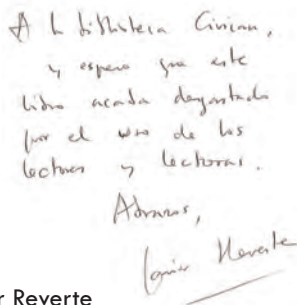 A la biblioteca Civican,
y espero que este
libro acabe desgastado
por el uso de los
lectores y lectoras.
Abrazos,
Javier Reverte
r Reverte